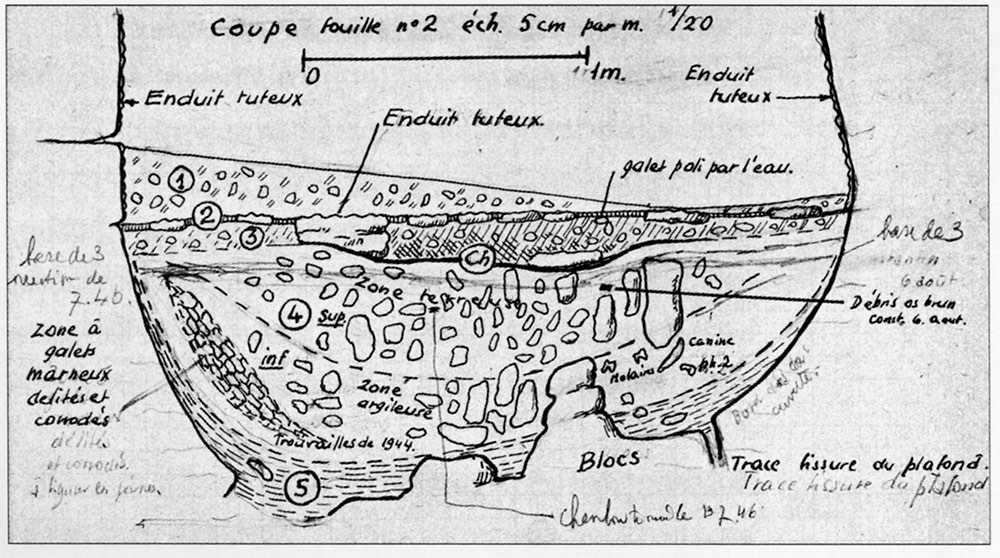 Coupe fouille n°2 éch. 5cm par m. 1/20
0 1m.
Enduit tuteux
Enduit tuteux.
Enduit
tuteux
galet poli par l'eau.
1
2
3
Ch
base de 3
7.46.
base de 3
6 août
Zone terreuse
4
Sup.
inf
Zone
argileuse
Débris os brun
Const. 6. aout.
Canine
Molaire
Zone à
galets
marneux
delités et
corrodés
délités
et corrodés.
à figurer en
Trouvailles de 1944.
5
Blocs
Trace fissure du plafond.
Trace fissure du plafond
7.46